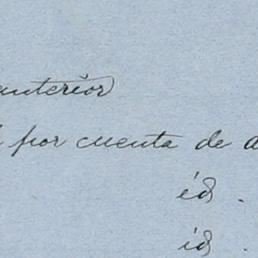 anterior
por cuenta de
id.
id.